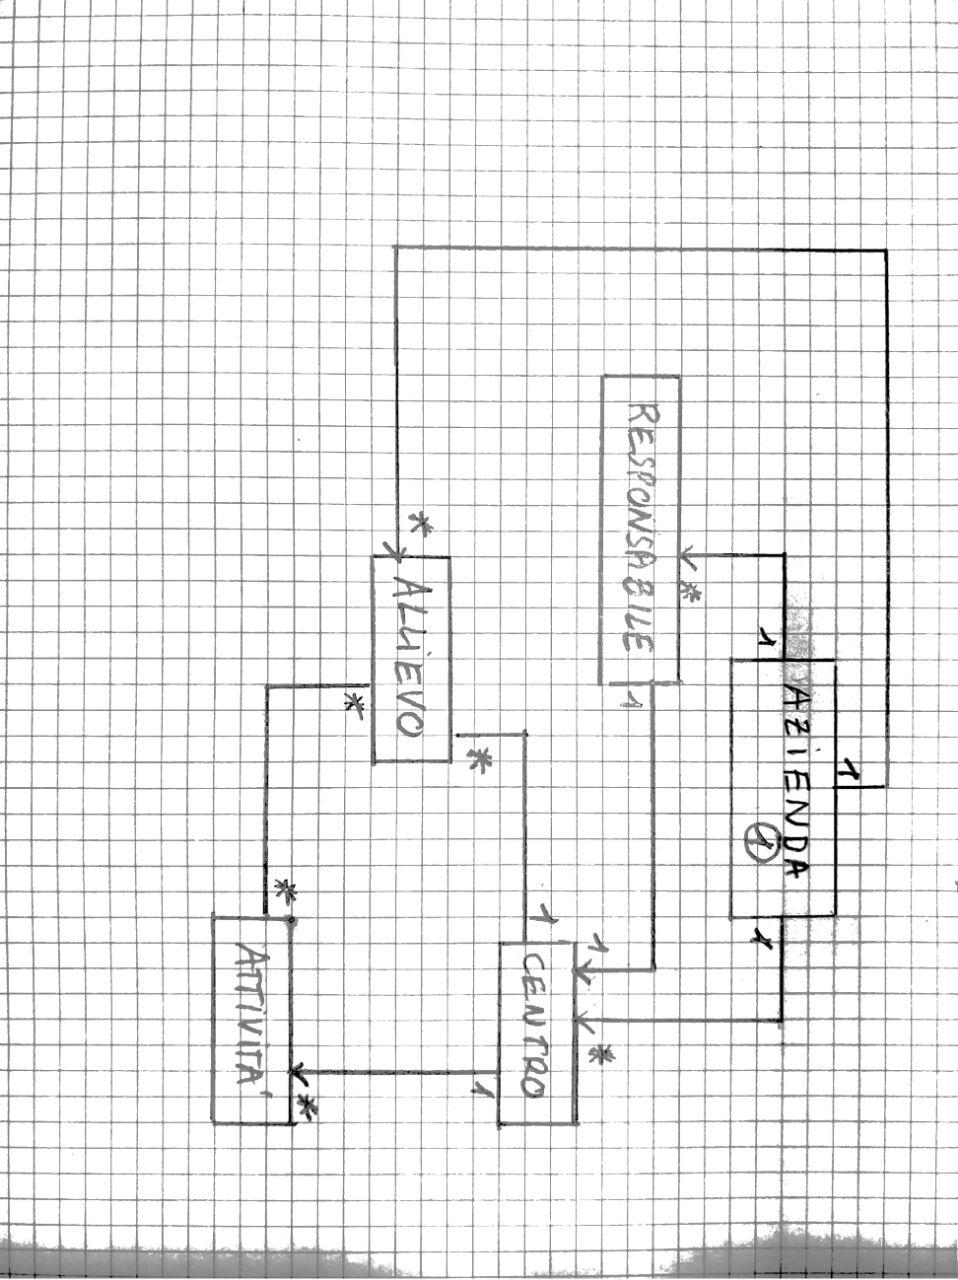 1
AZIENDA
1
1
1
*
RESPONSABILE
1
1
*
1
CENTRO
*
1
*
ALLIEVO
*
*
*
ATTIVITA'